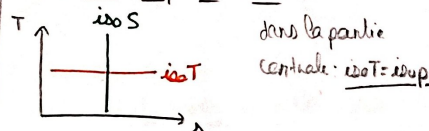 iso S
T
iso T
dans la partie
centrale : isoT = isop